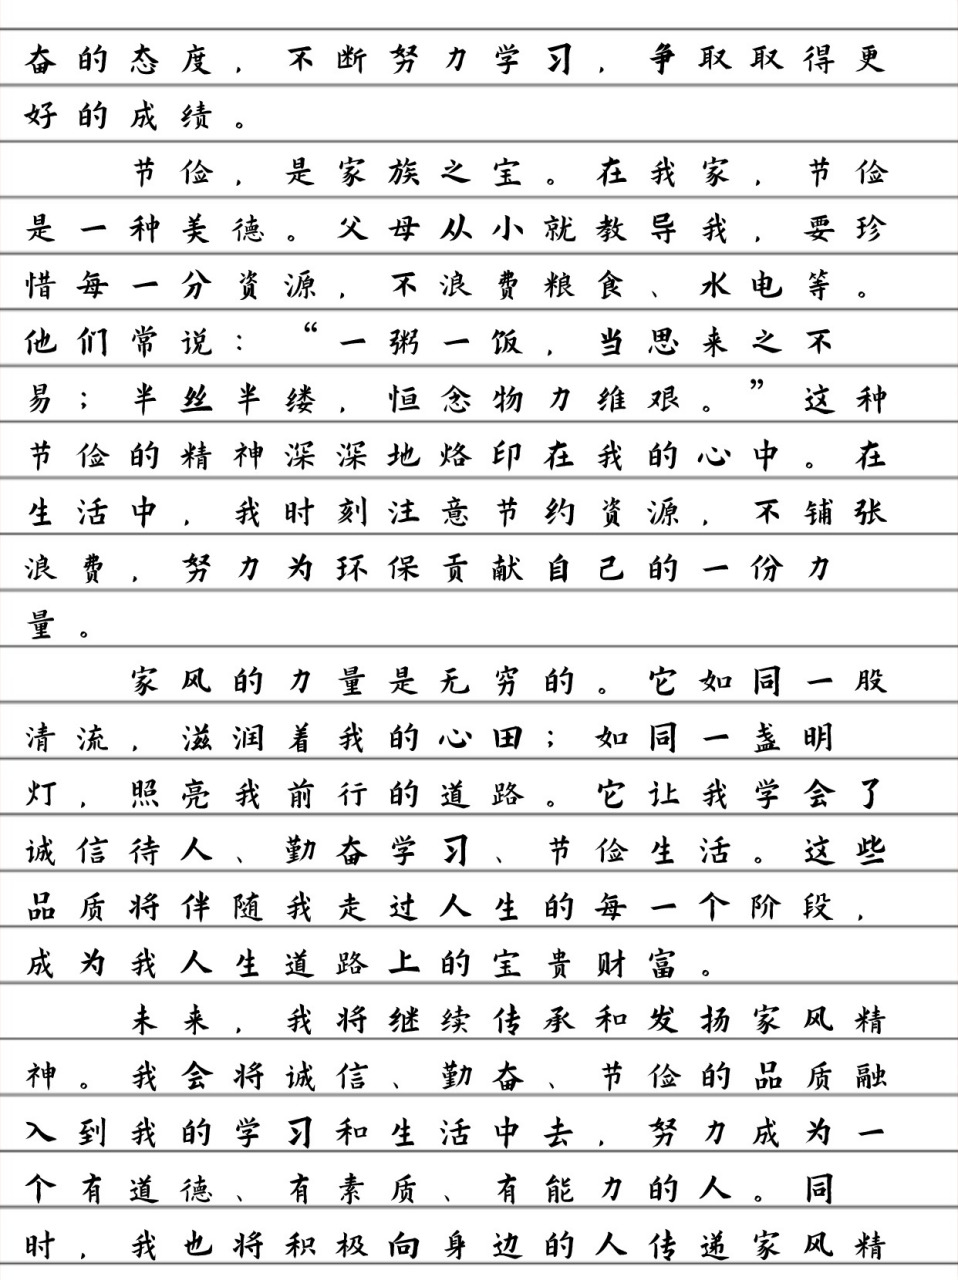 奋的态度，不断努力学习，争取取得更
好的成绩。
节俭，是家族之宝。在我家，节俭
是一种美德。父母从小就教导我，要珍
惜每一分资源，不浪费粮食、水电等。
他们常说：“一粥一饭，当思来之不
易；半丝半缕，恒念物力维艰。”这种
节俭的精神深深地烙印在我的心中。在
生活中，我时刻注意节约资源，不铺张
浪费，努力为环保贡献自己的一份力
量。
家风的力量是无穷的。它如同一股
清流，滋润着我的心田；如同一盏明
灯，照亮我前行的道路。它让我学会了
诚信待人、勤奋学习、节俭生活。这些
品质将伴随我走过人生的每一个阶段，
成为我人生道路上的宝贵财富。
未来，我将继续传承和发扬家风精
神。我会将诚信、勤奋、节俭的品质融
入到我的学习和生活中去，努力成为一
个有道德、有素质、有能力的人。同
时，我也将积极向身边的人传递家风精